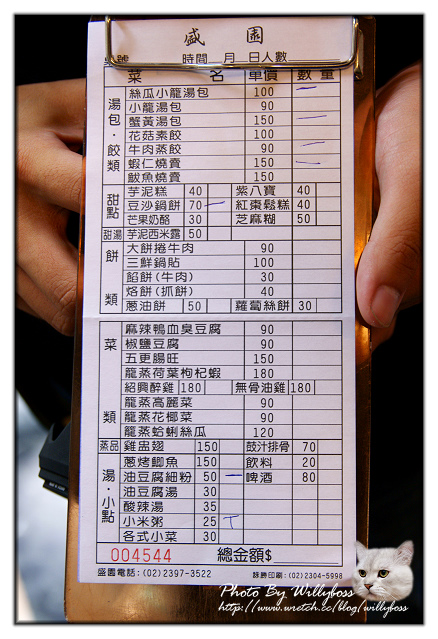 盛園
時間 月 日人數
菜 名 單價 數量
湯包・餃類
絲瓜小龍湯包 100
小龍湯包 90
蟹黃湯包 150
花菇素餃 100
牛肉蒸餃 90
蝦仁燒賣 150
鮁魚燒賣 150
甜點
芋泥糕 40 紫八寶 40
豆沙鍋餅 70 紅棗鬆糕 40
芒果奶酪 30 芝麻糊 50
甜湯 芋泥西米露 50
餅類
大餅捲牛肉 90
三鮮鍋貼 100
餡餅(牛肉) 30
烙餅(抓餅) 40
蔥油餅 50 蘿蔔絲餅 30
菜類
麻辣鴨血臭豆腐 90
椒鹽豆腐 90
五更腸旺 150
龍蒸荷葉枸杞蝦 180
紹興醉雞 180 無骨油雞 180
龍蒸高麗菜 90
龍蒸花椰菜 90
龍蒸蛤蜊絲瓜 120
蒸品 雞盅翅 150 鼓汁排骨 70
湯・小點
蔥烤鯽魚 150 飲料 20
油豆腐細粉 50 啤酒 80
油豆腐湯 30
酸辣湯 35
小米粥 25
各式小菜 30
004544 總金額$
盛園電話:(02)2397-3522 詠勝印刷:(02)2304-5998
Photo By Willyboss
http://www.wretch.cc/blog/willyboss